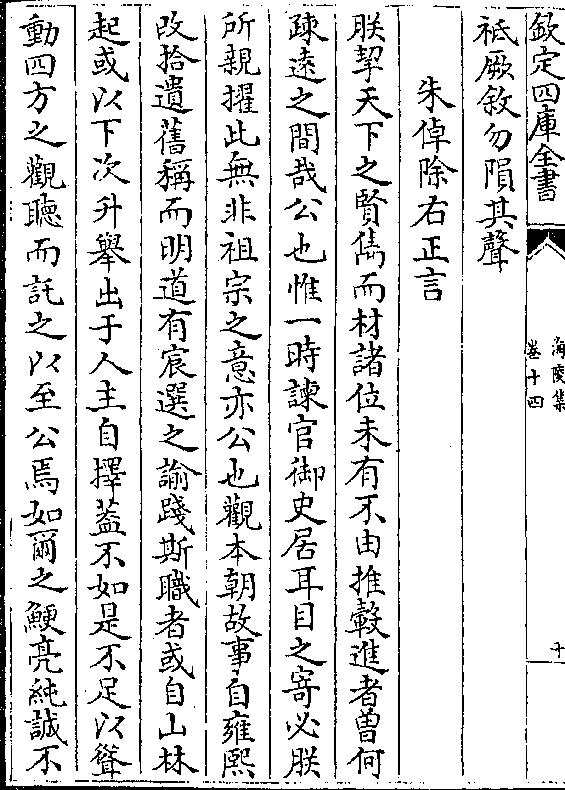 欽定四庫全書
海陵集
卷十四
十
祗厥敘勿隕其聲
朱倬除右正言
朕挈天下之賢雋而材諸位未有不由推轂進者曽何
疎逺之間哉公也惟一時諫官御史居耳目之寄必朕
所親擢此無非祖宗之意亦公也觀本朝故事自雍熙
改拾遺舊稱而明道有宸選之諭踐斯職者或自山林
起或以下次升舉出于人主自擇葢不如是不足以聳
動四方之觀聽而託之以至公焉如爾之鯁亮純誠不